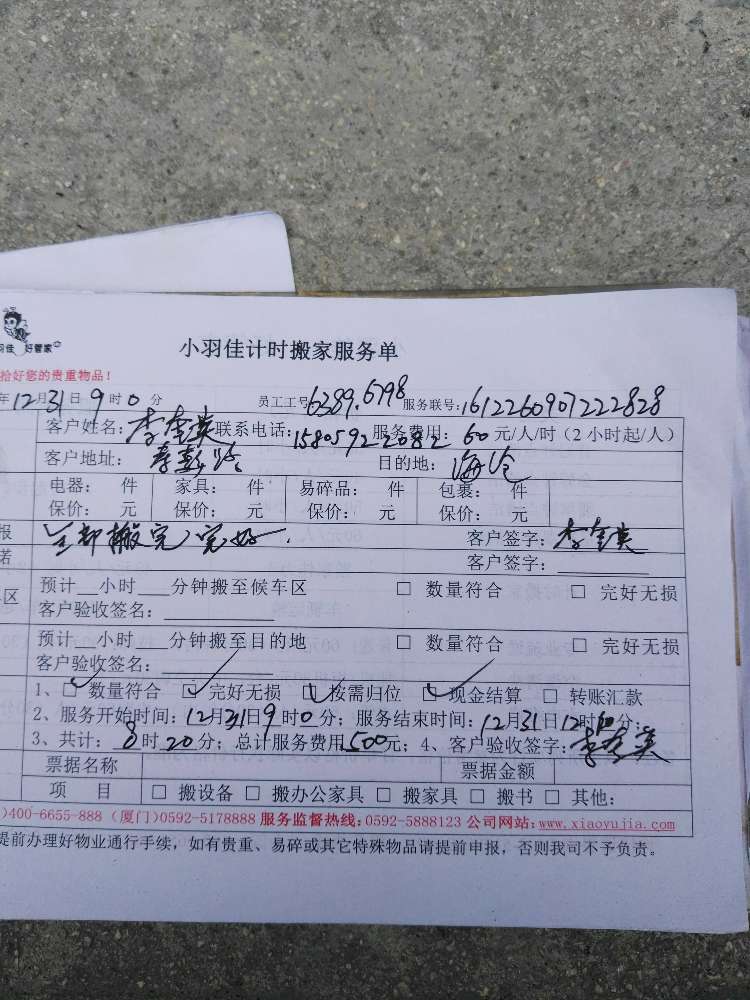 羽佳 好管家
小羽佳计时搬家服务单
拾好您的贵重物品！
年12月31日9时0分 员工工号6389.6798 服务联号:1612260907222828
客户姓名: 联系电话:15805922082 服务费用: 60元/人/时（2小时起/人）
客户地址: 目的地: 海沧
电器： 件 家具： 件 易碎品： 件 包裹： 件
保价： 元 保价： 元 保价： 元 保价： 元
报 全部搬完完好. 客户签字：
诺 客户签字：
区 预计__小时___分钟搬至候车区 □ 数量符合 □ 完好无损
客户验收签名：
预计__小时___分钟搬至目的地 □ 数量符合 □ 完好无损
客户验收签名：
1、□ 数量符合 □ 完好无损 □ 按需归位 □ 现金结算 □ 转账汇款
2、服务开始时间：12月31日9时0分；服务结束时间：12月31日12时 分；
3、共计：8时20分；总计服务费用500元；4、客户验收签字：
票据名称 票据金额
项 目 □ 搬设备 □ 搬办公家具 □ 搬家具 □ 搬书 □ 其他：
)400-6655-888 (厦门)0592-5178888 服务监督热线:0592-5888123 公司网站:www.xiaoyujia.com
提前办理好物业通行手续，如有贵重、易碎或其它特殊物品请提前申报，否则我司不予负责。